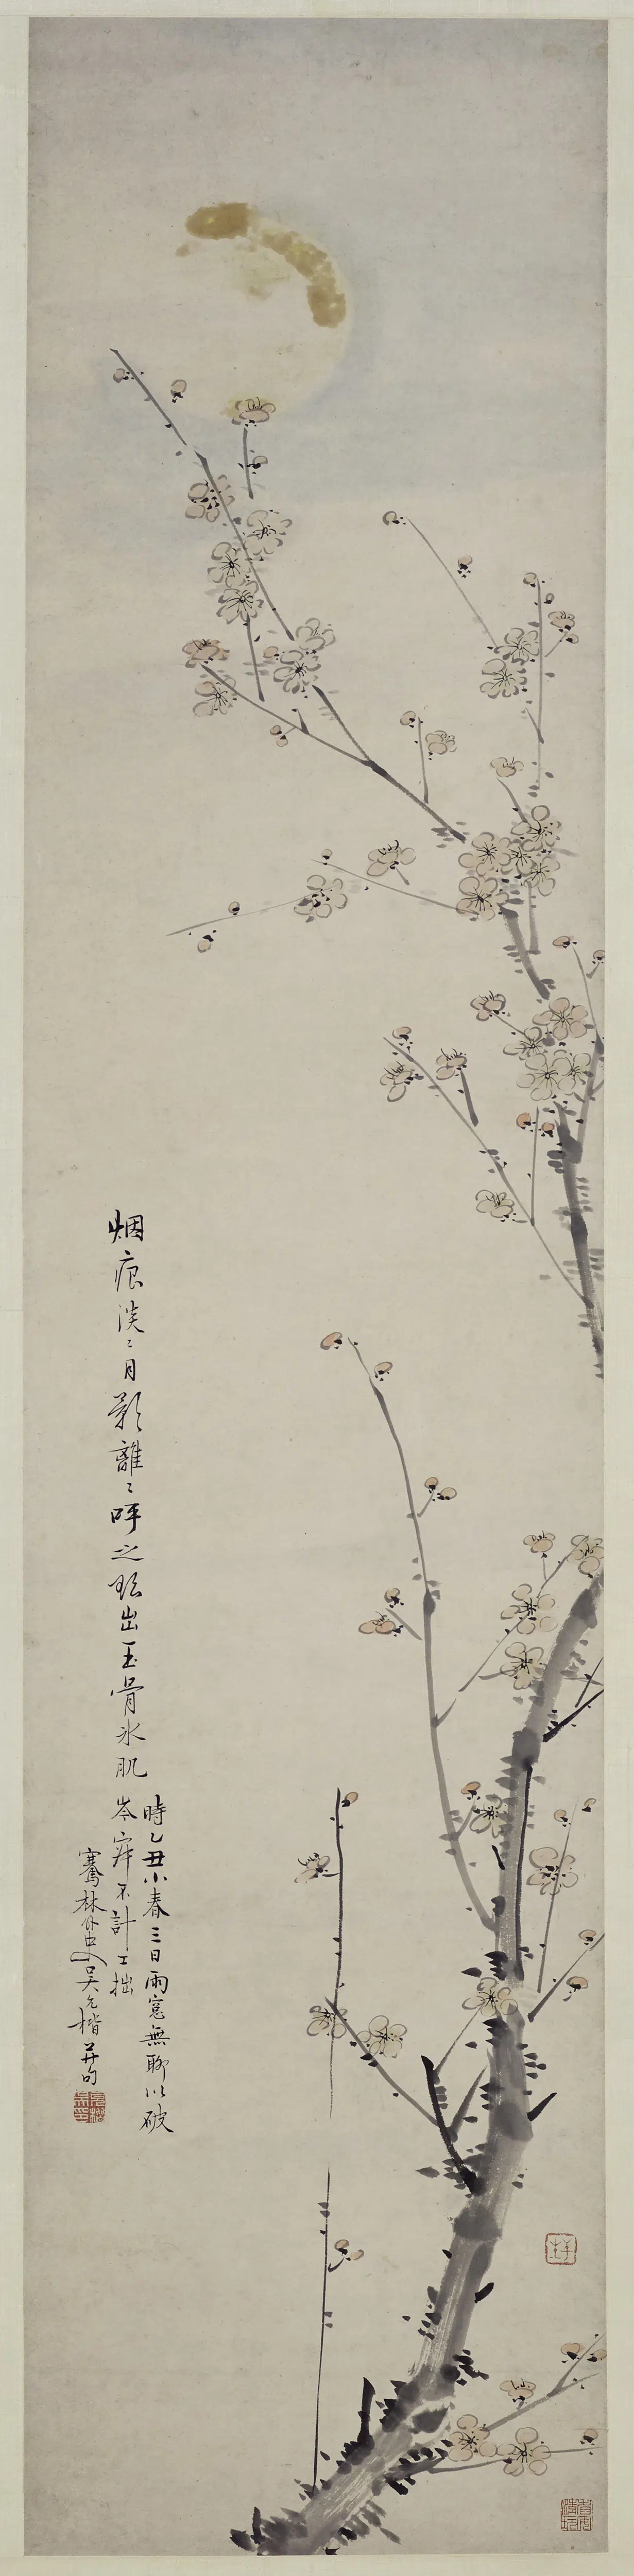 烟痕淡〻月影離〻呼之欲出玉骨冰肌
時乙丑小春三日雨窓無聊以破
岑寂不計工拙
騫林外史吳允楷并句